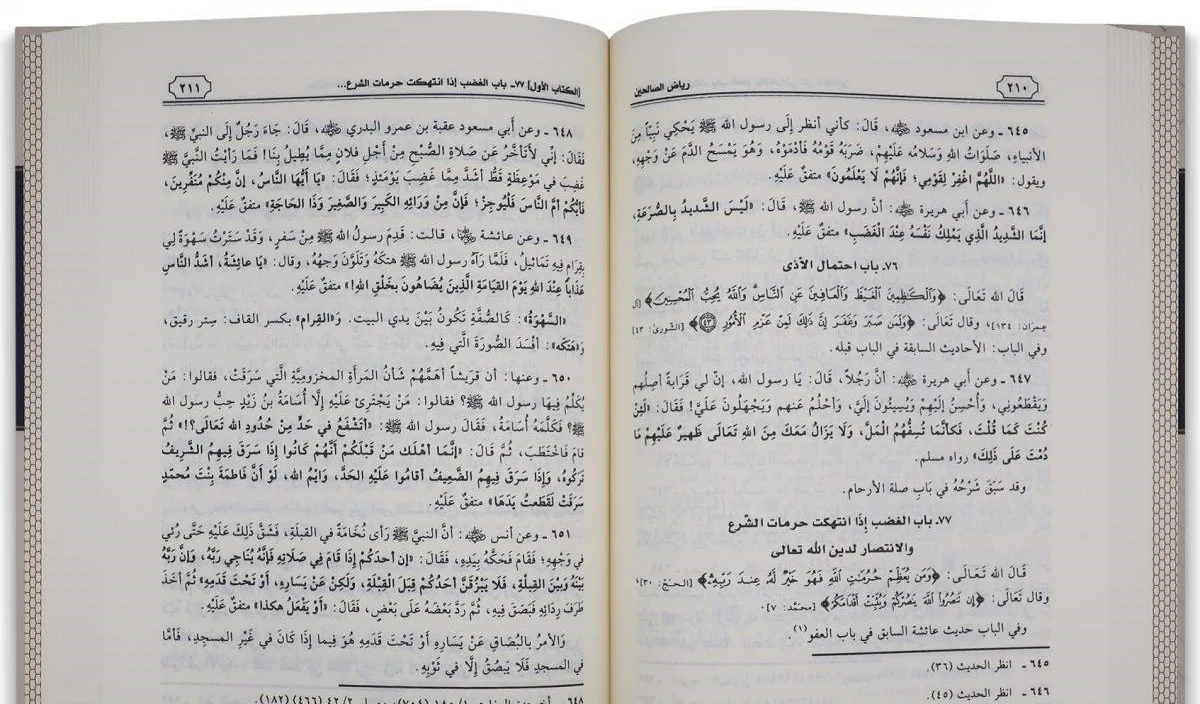 ٢١٠
رياض الصالحين
٦٤٥ ـ وعن ابن مسعود ﷺ، قَالَ: كأني أنظر إلَى رسول الله ﷺ يَحْكِي نَبِيّاً مِنَ
الأنبياءِ، صَلَوَاتُ اللهِ وَسَلامُه عَلَيْهِمْ، ضَرَبَهُ قَوْمُهُ فَأَدْمَوْهُ، وَهُوَ يَمْسَحُ الدَّمَ عَنْ وَجْهِهِ،
ويقول: «اللَّهُمَّ اغْفِرْ لِقَوْمِي؛ فَإنَّهُمْ لَا يَعْلَمُونَ» متفقٌ عَلَيْهِ.
٦٤٦ ـ وعن أَبي هريرة ﷺ: أنَّ رسول الله ﷺ، قَالَ: «لَيْسَ الشَّديدُ بِالصُّرَعَةِ،
إنَّمَا الشَّديدُ الَّذِي يَمْلِكُ نَفْسَهُ عِنْدَ الْغَضَبِ» متفقٌ عَلَيْهِ.
٧٦ـ باب احتمال الأذى
قَالَ الله تَعَالَى: ﴿وَالْكَظِمِينَ الْغَيْظَ وَالْعَافِينَ عَنِ النَّاسِ وَاللَّهُ يُحِبُّ الْمُحْسِنِينَ﴾ [آل
عِمرَان: ١٣٤] وقال تَعَالَى: ﴿وَلَمَن صَبَرَ وَغَفَرَ إِنَّ ذَلِكَ لَمِنْ عَزْمِ الْأُمُورِ ٤٣﴾ [الشورىٰ: ٤٣]
وفي الباب: الأحاديث السابقة في الباب قبله.
٦٤٧ ـ وعن أَبي هريرة ﷺ: أنَّ رَجُلاً، قَالَ: يَا رسول الله، إنّ لي قَرَابةً أصِلُهم
وَيَقْطَعُوني، وَأُحْسِنُ إلَيْهِمْ وَيُسِيئُونَ إلَيَّ، وَأحْلُمُ عَنهم وَيَجْهَلُونَ عَلَيَّ! فَقَالَ: «لَئِنْ
كُنْتَ كَمَا قُلْتَ، فَكأنَّمَا تُسِفُّهُمُ الْمَلَّ، وَلَا يَزَالُ مَعَكَ مِنَ اللهِ تَعَالَى ظَهِيرٌ عَلَيْهِمْ مَا
دُمْتَ عَلَى ذَلِكَ» رواه مسلم.
وقد سَبَقَ شَرْحُهُ في بَابِ صلة الأرحام.
٧٧ـ باب الغضب إذَا انتهكت حرمات الشّرع
والانتصار لدين الله تعالى
قَالَ الله تَعَالَى: ﴿وَمَن يُعَظِّمْ حُرُمَتِ اللَّهِ فَهُوَ خَيْرٌ لَّهُ عِندَ رَبِّهِ﴾ [الحَجّ: ٣٠]
وقال تَعَالَى: ﴿إِن تَنصُرُوا اللَّهَ يَنصُرْكُمْ وَيُثَبِّتْ أَقْدَامَكُمْ﴾ [محمَّد: ٧].
وفي الباب حديث عائشة السابق في باب العفو(١).
٦٤٥ ـ انظر الحديث (٣٦).
٦٤٦ ـ انظر الحديث (٤٥).
[الكتاب الأول] ٧٧ـ باب الغضب إذا انتهكت حرمات الشرع...
٢١١
٦٤٨ ـ وعن أَبي مسعود عقبة بن عمرو البدري ﷺ، قَالَ: جَاءَ رَجُلٌ إِلَى النبيِّ ﷺ،
فَقَالَ: إنِّي لَأَتَأخَّرُ عَن صَلاةِ الصُّبْحِ مِنْ أَجْلِ فلانٍ مِمَّا يُطِيلُ بِنَا! فَمَا رَأيْتُ النَّبيَّ ﷺ
غَضِبَ في مَوْعِظَةٍ قَطُّ أشَدَّ مِمَّا غَضِبَ يَوْمَئِذٍ؛ فَقَالَ: «يَا أيُّهَا النَّاسُ، إنَّ مِنْكُمْ مُنَفِّرِينَ،
فَأيُّكُمْ أمَّ النَّاسَ فَلْيُوجِزْ؛ فَإنَّ مِنْ وَرَائِهِ الكَبِيرَ وَالصَّغِيرَ وَذَا الحَاجَةِ» متفقٌ عَلَيْهِ.
٦٤٩ ـ وعن عائشة ﷺ، قالت: قَدِمَ رسولُ الله ﷺ مِنْ سَفرٍ، وَقَدْ سَتَرْتُ سَهْوَةً لِي
بِقِرَامٍ فِيهِ تَمَاثيلُ، فَلَمَّا رَآهُ رسول الله ﷺ هتكَهُ وَتَلَوَّنَ وَجهُهُ، وقال: «يَا عائِشَةُ، أشَدُّ النَّاسِ
عَذَاباً عِنْدَ اللهِ يَوْمَ القيَامَةِ الَّذِينَ يُضَاهُونَ بخَلْقِ اللهِ!» متفقٌ عَلَيْهِ.
«السَّهْوَةُ»: كَالصُّفَّةِ تَكُونُ بَيْنَ يدي البيت. وَ«القِرام» بكسر القاف: سِتر رقيق،
وَ«هتَكَه»: أفْسَدَ الصُّورَةَ الَّتي فِيهِ.
٦٥٠ ـ وعنها: أن قرَيشاً أهَمَّهُمْ شَأنُ المَرأَةِ المخزوميَّةِ الَّتي سَرَقَتْ، فقالوا: مَنْ
يُكَلِّمُ فِيهَا رسول الله ﷺ؟ فقالوا: مَنْ يَجْتَرِئُ عَلَيْهِ إلَّا أُسَامَةُ بنُ زَيْدٍ حِبُّ رسول الله
ﷺ؟ فَكَلَّمَهُ أُسَامَةُ، فَقَالَ رسول الله ﷺ: «أتَشْفَعُ في حَدٍّ مِنْ حُدُودِ الله تَعَالَى؟!» ثُمَّ
قامَ فَاخْتَطَبَ، ثُمَّ قَالَ: «إنَّمَا أهْلَك مَنْ قَبْلَكُمْ أنَّهُمْ كَانُوا إذَا سَرَقَ فِيهِمُ الشَّرِيفُ
تَرَكُوهُ، وَإذَا سَرَقَ فِيهِمُ الضَّعِيفُ أقامُوا عَلَيْهِ الحَدَّ، وَايْمُ الله، لَوْ أَنَّ فَاطمَةَ بِنْتَ مُحمّدٍ
سَرَقَتْ لَقَطعتُ يَدَهَا» متفقٌ عَلَيْهِ.
٦٥١ ـ وعن أنس ﷺ: أنَّ النبيَّ ﷺ رَأى نُخَامَةً في القبلَةِ، فَشَقَّ ذَلِكَ عَلَيْهِ حَتَّى رُئِيَ
في وَجْهِهِ؛ فَقَامَ فَحَكَّهُ بِيَدِهِ، فَقَالَ: «إن أحدَكُمْ إِذَا قَامَ فِي صَلَاتِهِ فَإنَّهُ يُنَاجِي رَبَّهُ، وَإنَّ رَبَّهُ
بَيْنَهُ وَبَيْنَ القِبلَةِ، فَلَا يَبْزُقَنَّ أحَدُكُمْ قِبَلَ الْقِبْلَةِ، وَلَكِنْ عَنْ يَسَارِهِ، أَوْ تَحْتَ قَدَمِهِ» ثُمَّ أخَذَ
طَرَفَ رِدَائِهِ فَبَصَقَ فِيهِ، ثُمَّ رَدَّ بَعْضَهُ عَلَى بَعْضٍ، فَقَالَ: «أَوْ يَفْعَلُ هكذا» متفقٌ عَلَيْهِ.
وَالأمرُ بالبُصَاقِ عَنْ يَسَارِهِ أَوْ تَحْتَ قَدَمِهِ هُوَ فِيما إِذَا كَانَ فِي غَيْرِ المسجِدِ، فَأمَّا
في المسجدِ فَلَا يَبصُقُ إلَّا في ثَوْبِهِ.